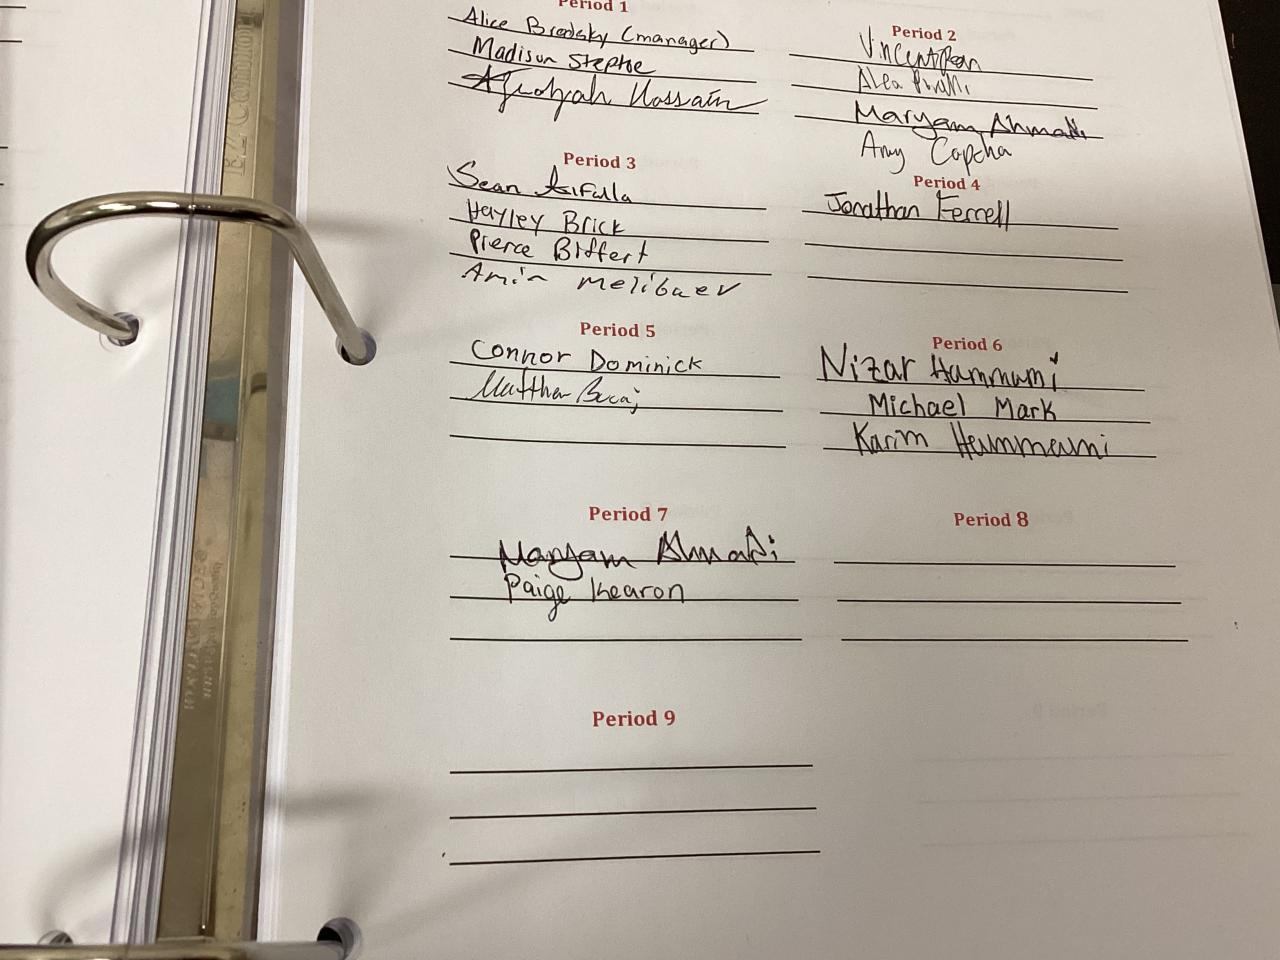 Period 1
Alice Brodsky (manager)
Madison Steptoe
Hossain
Period 2
Vincent
Alea
Maryam Ahmadi
Amy Copcha
Period 3
Sean
Hayley Brick
Pierce Biffert
Amin Melibaev
Period 4
Jonathan Ferrell
Period 5
Connor Dominick
Matthew
Period 6
Nizar Hammami
Michael Mark
Karim Hammami
Period 7
Maryam Ahmadi
Paige Kearon
Period 8
Period 9